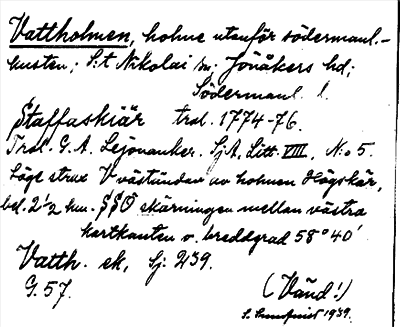 Vattholmen, holme utanför södermanl.-
kusten; S:t Nikolai sn. Jönåkers hd;
Södermanl. l.
Staffaskiär trol. 1774-76.
Trol. G. A. Lejonanker. Sj.A. Litt. VIII, N:o 5.
Läge strax V västundan av holmen Högskär,
bel. 2 1/2 km. SSO skärningen mellan västra
kartkanten o. breddgrad 58°40'
Vatth. ek, Sj. 239.
G. 57.
(Vänd!)
S. Sundqvist 1939.